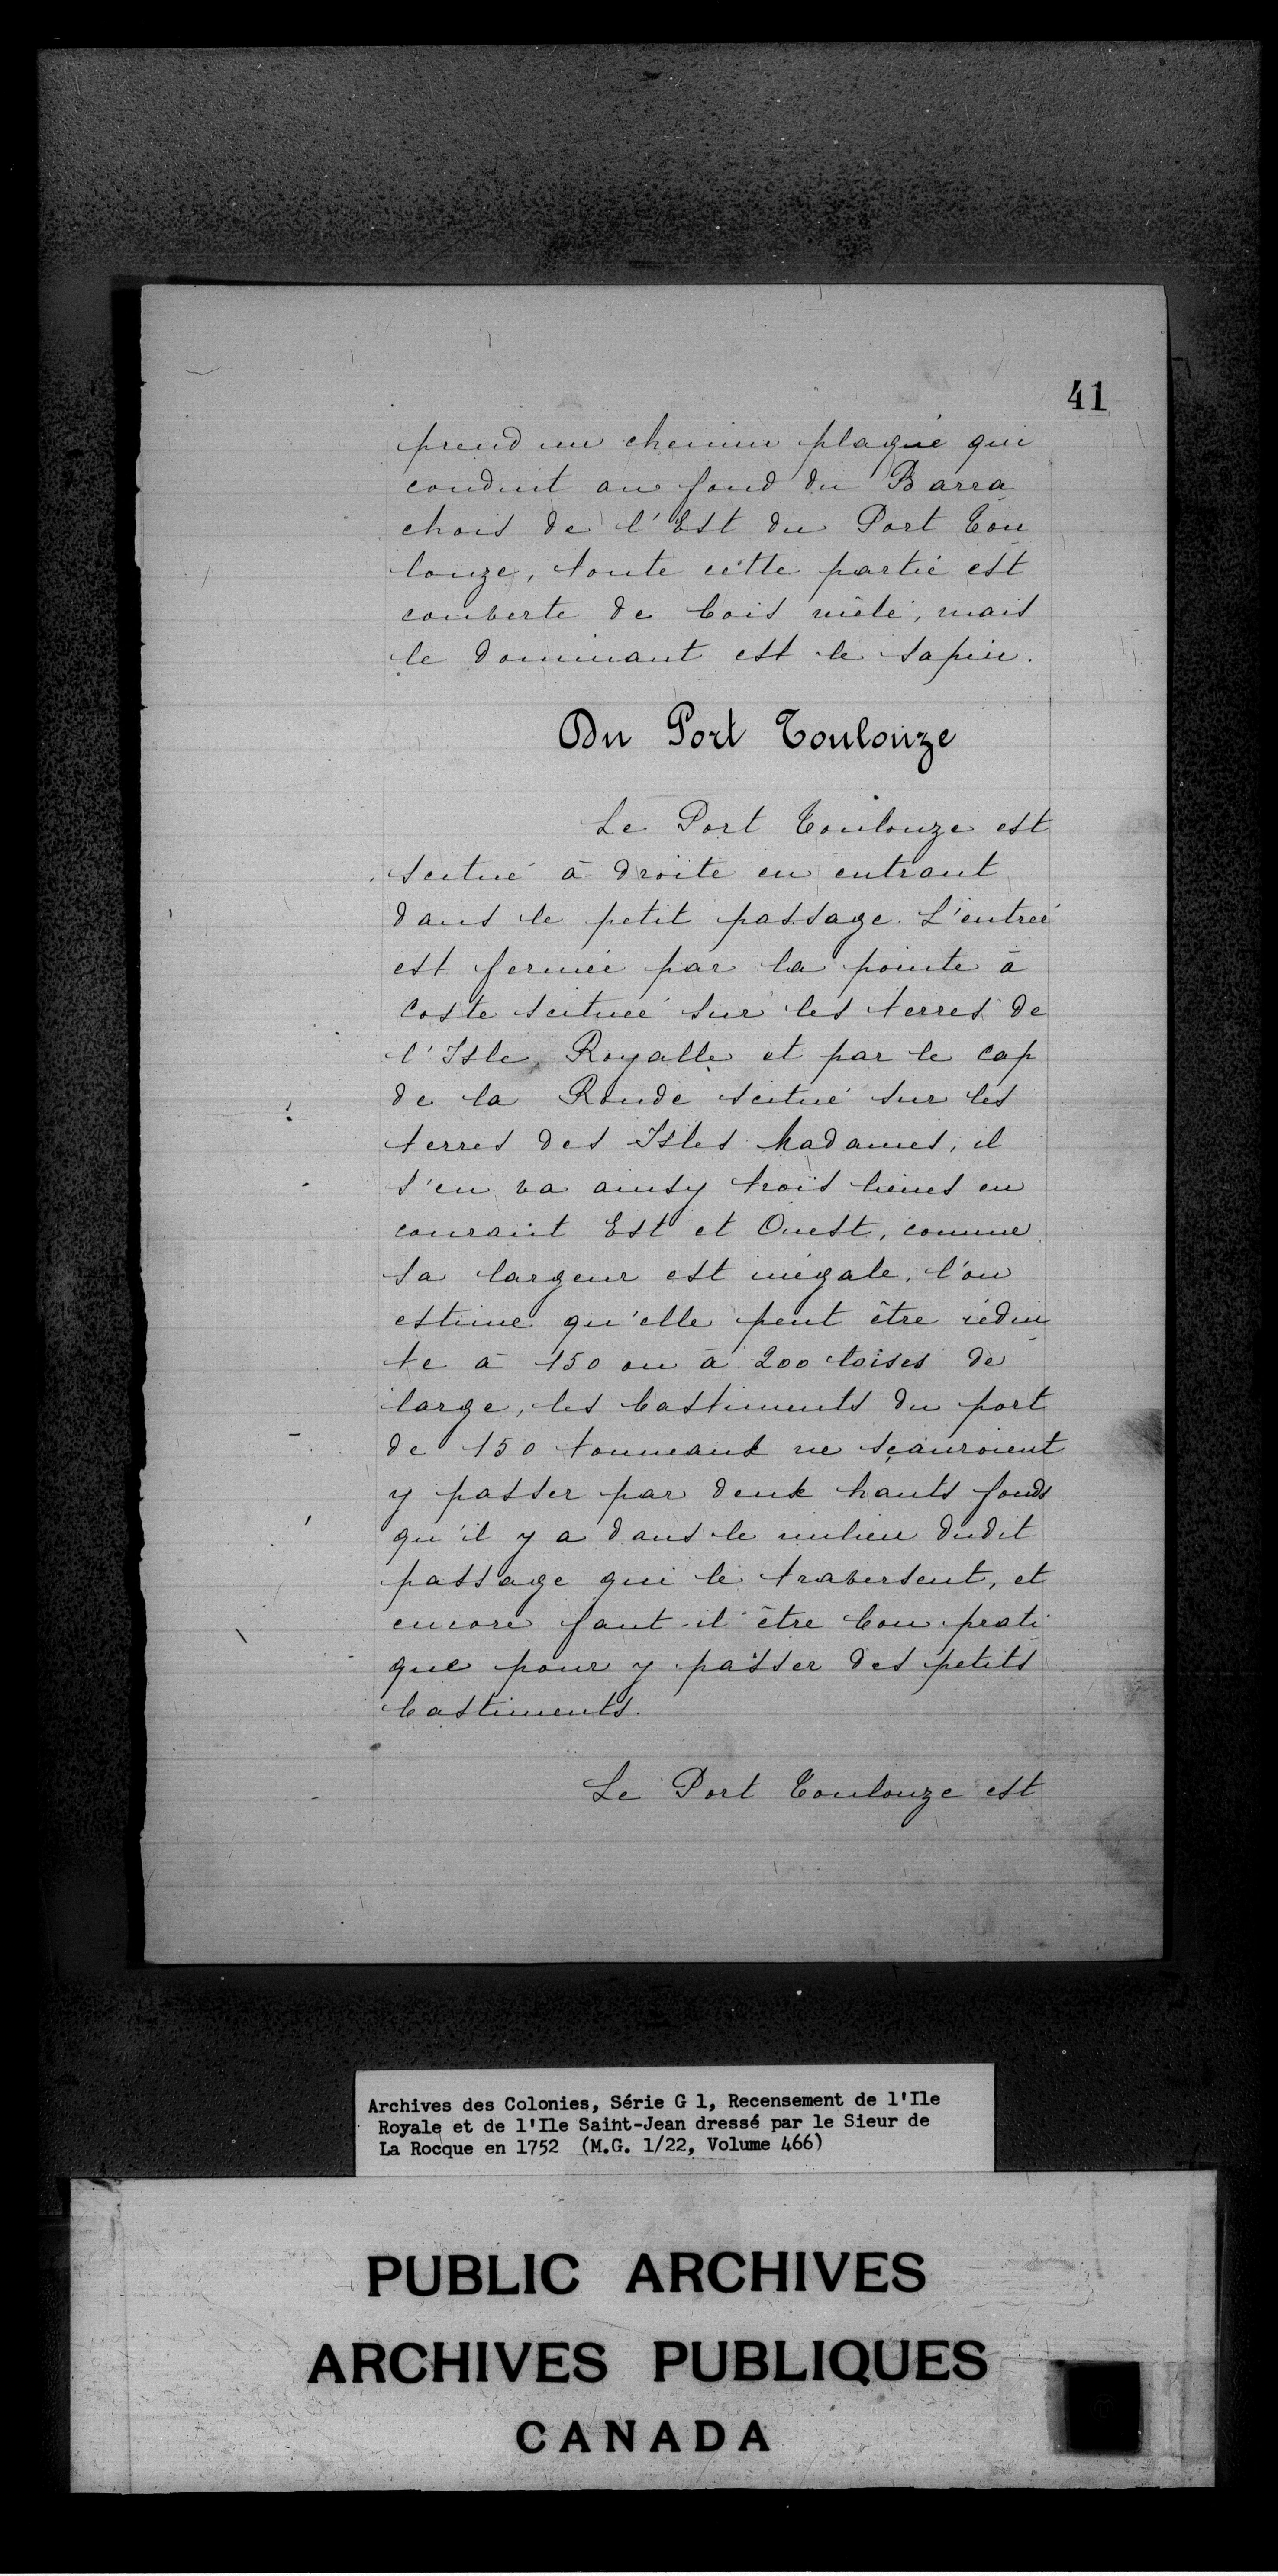 41
prend un chemin plaqué qui
conduit au fond du Barra
chois de l'Est du Port Tou
louze, toute cette partie est
couverte de bois mêlé, mais
le dominant est le sapin.
Du Port Toulouze
Le Port Toulouze est
scitué à droite en entrant
dans le petit passage. L'entrée
est fermée par la pointe à
Coste scituée sur les terres de
l'Isle Royalle et par le cap
de la Ronde scitué sur les
terres des Isles Madames, il
s'en va ainsy trois lieues en
courant Est et Ouest, comme
sa largeur est inégale, l'on
estime qu'elle peut être rédui
te à 150 ou à 200 toises de
large, les bastiments du port
de 150 tonneaux ne sçauroient
y passer par deux hauts fonds
qu'il y a dans le milieu dudit
passage qui le traversent, et
encore faut-il être bon prati
que pour y passer des petits
bastiments.
Le Port Toulouze est
Archives des Colonies, Série G 1, Recensement de l'Ile
Royale et de l'Ile Saint-Jean dressé par le Sieur de
La Rocque en 1752 (M.G. 1/22, Volume 466)
PUBLIC ARCHIVES
ARCHIVES PUBLIQUES
CANADA